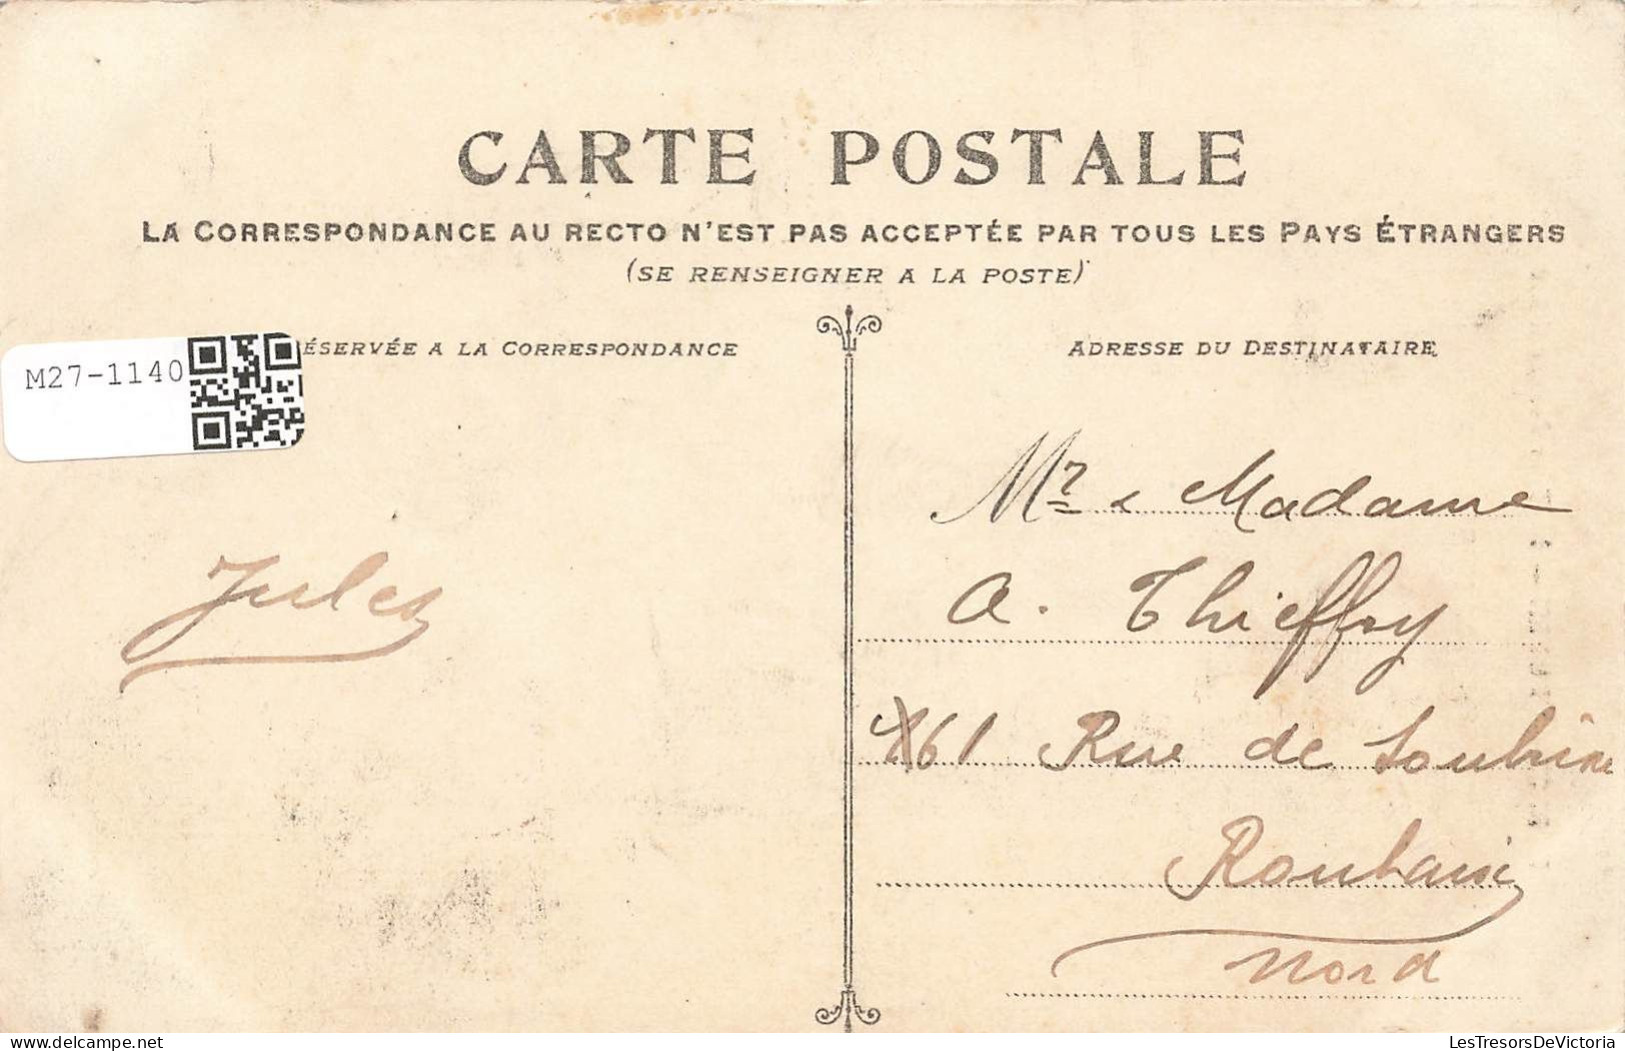 CARTE POSTALE
LA CORRESPONDANCE AU RECTO N'EST PAS ACCEPTÉE PAR TOUS LES PAYS ÉTRANGERS
(SE RENSEIGNER A LA POSTE)
ÉSERVÉE A LA CORRESPONDANCE
M27-1140
Jules
ADRESSE DU DESTINATAIRE
Mr & Madame
A. Thieffry
61 Rue de Soubise
Roubaix
Nord
delcampe.net
LesTresorsDeVictoria